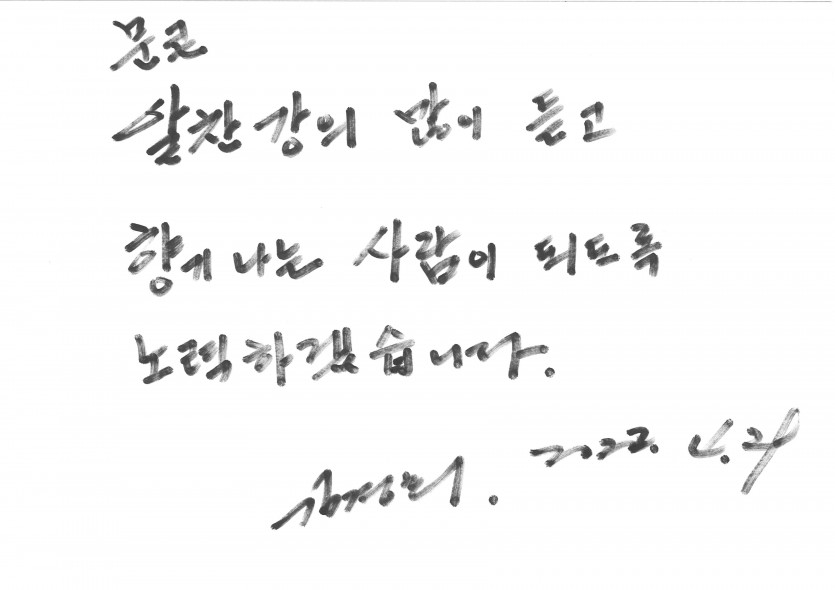 알찬 강의 많이 듣고
향기 나는 사람이 되도록
노력하겠습니다.
2022. 4. 29